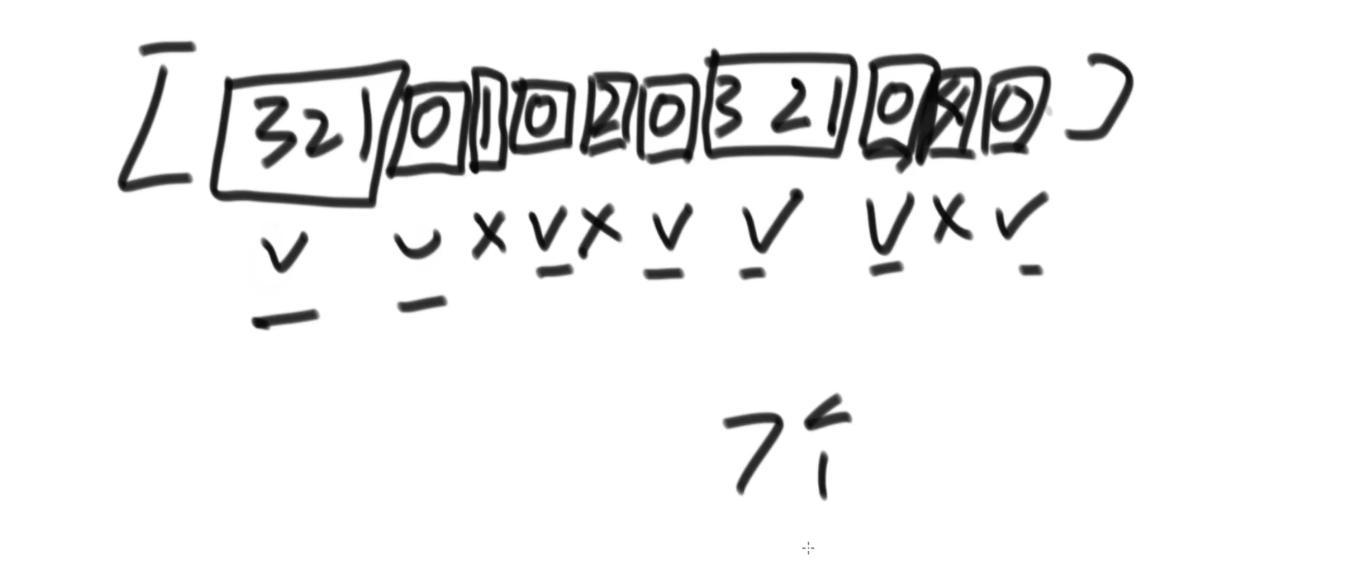 [ 321 0 1 0 2 0 321 0 0 ]
✓ ✓ × ✓ × ✓ ✓ ✓ × ✓
7个